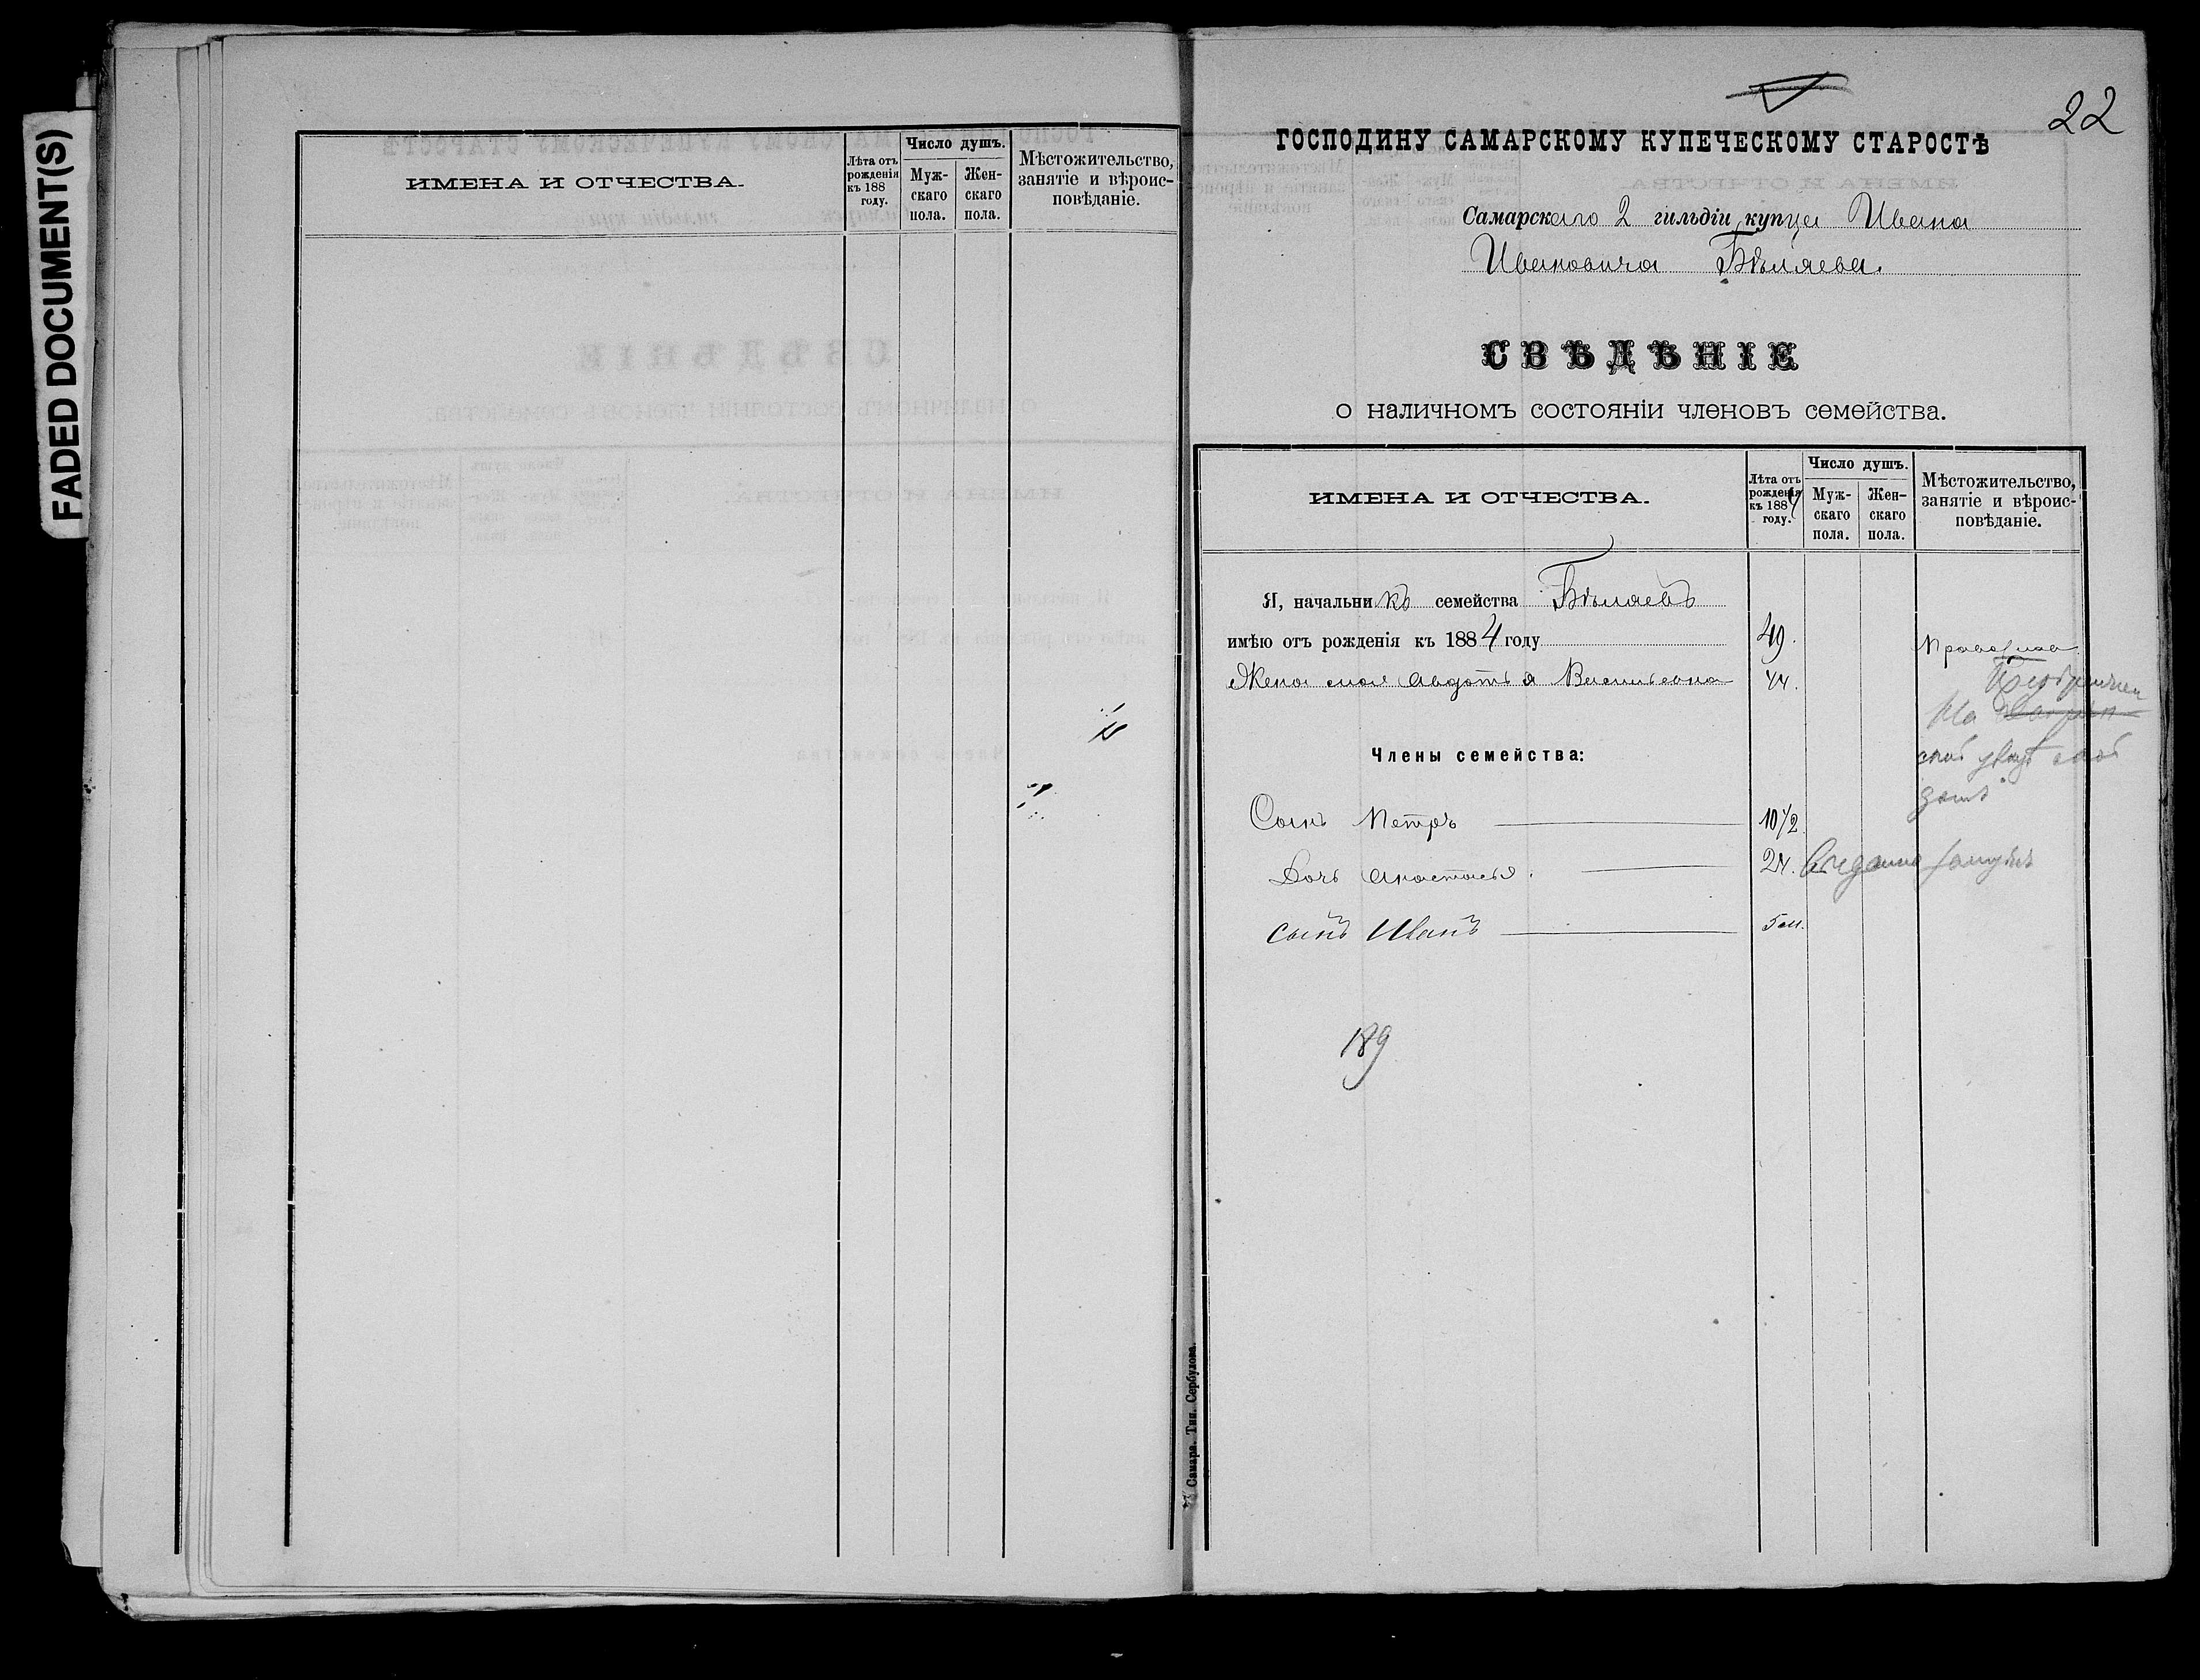 FADED DOCUMENT(S)
ИМЕНА И ОТЧЕСТВА.
Лѣта отъ рожденія къ 188 году.
Число душъ.
Муж-скаго пола.
Жен-скаго пола.
Мѣстожительство, занятіе и вѣроис-повѣданіе.
22
ГОСПОДИНУ САМАРСКОМУ КУПЕЧЕСКОМУ СТАРОСТѢ
Самарскаго 2 гильдіи купца Ивана
Ивановича Бѣляева.
СВѢДѢНІЕ
о наличномъ состояніи членовъ семейства.
ИМЕНА И ОТЧЕСТВА.
Лѣта отъ рожденія къ 1884 году.
Число душъ.
Муж-скаго пола.
Жен-скаго пола.
Мѣстожительство, занятіе и вѣроис-повѣданіе.
Я, начальникъ семейства Бѣляевъ
имѣю отъ рожденія къ 1884 году 49.
Жена моя Авдотья Васильевна 44.
На
домѣ
Члены семейства:
Сынъ Петръ 10 1/2
Дочь Анастасья. 24. Выдана замужъ
сынъ Иванъ 5 м.
189
Самара. Тип. Сербулова.